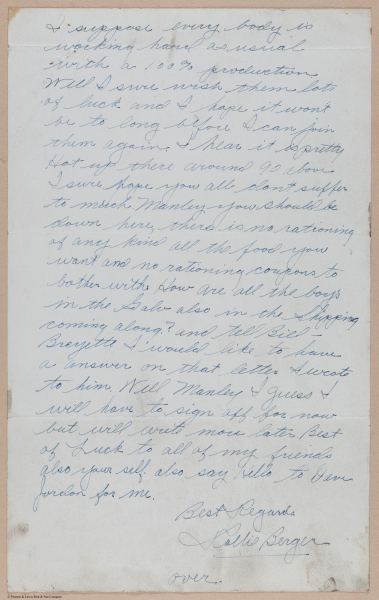 I suppose every body is
working hard as usual
with a 100% production
Well I sure wish them lots
of luck and I hope it wont
be to long before I can join
them again. I hear it is pretty
Hot up there around 90 above
I sure hope you all dont suffer
to much Manley you should be
down here, there is no rationing
of any kind all the food you
want and no rationing coupons to
bother with. How are all the boys
in the Galv also in the Shipping
coming along? and tell Bill
I would like to have
a answer on that letter I wrote
to him. Well Manley I guess I
will have to sign off for now
but will write more later. Best
of Luck to all of my friends
also your self also say hello to Dave
Jordon for me.
Best Regards
Berger
over.